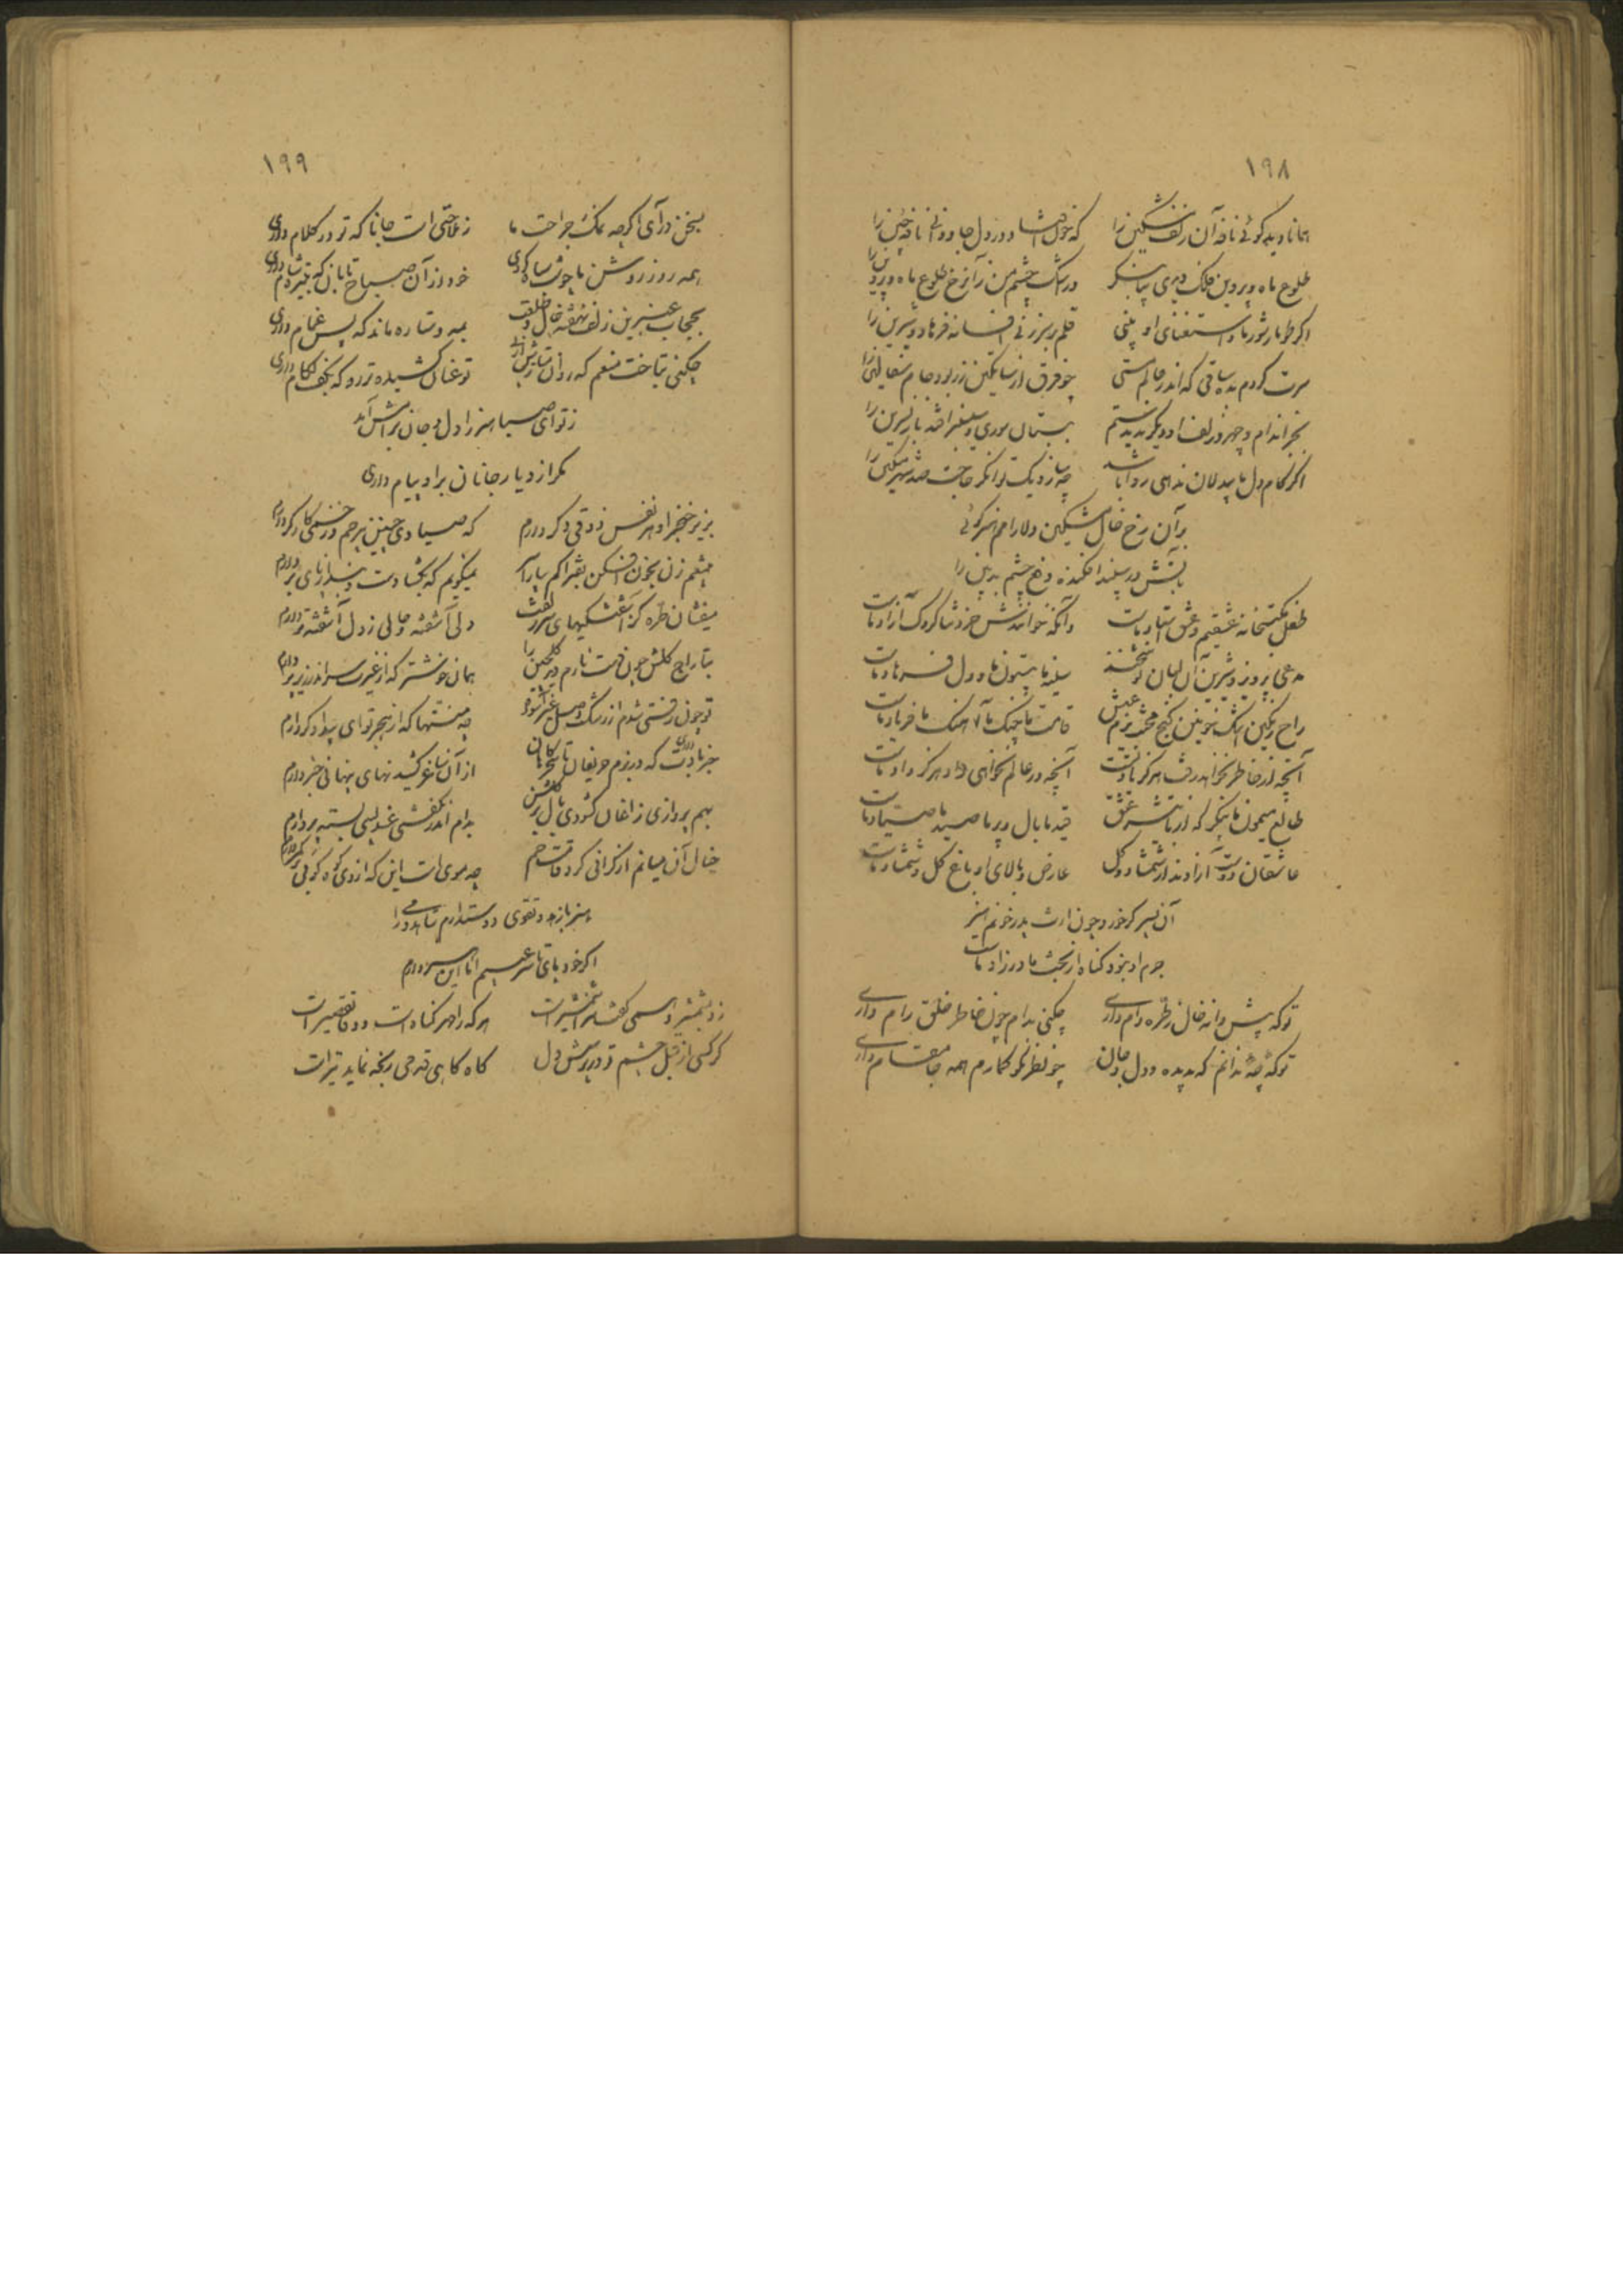 ۱۹۸
همانا دیده گوئی نافه آن زلف مشکین را که خون افشا
طلوع ماه و پروین فلک دیدی بیا بنگر در اشک چشم من زآنرخ طلوع ماه و پروین را
اگر طومار شور ما و استغنای او بینی قلم بر سر زنی افسانه فرهاد و شیرین را
سرت گردم بده ساقی که اندر عالم مستی چو فرق از ساتکین زر بود جام سفالین را
بجز اندام و چهر و زلف او دیگر ندیدستم
اگر کام دل ما بیدلان ندهی روا باشد چه سان نزدیک توانگر حاجت صد مسکین را
بر آن رخ خال مشکین دلارام هنر گوئی
بآتش در سپند افکنده دفع چشم بدبین را
طفل مکتبخانه عشقیم و عشق استاد ماست وآنکه خوانندش خرد شاگردک آزاد ماست
مدعی پرویز و شیرین آن لبان نوشخند سینه ما بیستون ما و دل فرهاد ماست
راح رنگین اشک خونین کنج محنت بزم عیش قامت ما چنگ ما آهنگ ما فریاد ماست
آنچه از خاطر نخواهد رفت هرگز یاد تست آنچه در عالم نخواهی داد هرگز داد ماست
طالع میمون ما بنگر که از تاثیر عشق قید ما بال و پر ما صید ما صیاد ماست
عاشقان دوست آزادند از شمشاد و گل عارض و بالای او باغ گل و شمشاد ماست
آن پسر گر خورد چون ارث پدر خونم هنر
جرم او نبود گناه از بخت مادرزاد ماست
تو که پیش دانه خال ز طره دام داری چکنی بدام چون خاطر خلق رام داری
تو که چه ندانم که بدیده و دل و جان چو نظر نکو گمارم همه جا مقام داری
۱۹۹
بسخن درآی اگرچه نمک جراحت ما ز ملاحتی است جانا که تو در کلام داری
همه روز روشن ما چو شب سیاه کردی خود از آن صباح تابان که بتیره شام داری
بحجاب عنبرین زلف نهفته خال و خلقت بمه و ستاره ماند که پس غمام داری
چکنی بتاخت منعم که روان بتازش از تو عنان کشیده تر رو که بکف لگام داری
ز تو ای صبا هنر را دل و جان برامش آمد
مگر از دیار جانان بر او پیام داری
بزیر خنجر او هر نفس ذوقی دگر دارم که صیادی چنین بیرحم و زخمی کارگر دارم
میفشان طره کز آشفتگیهای سر زلفت دلی آشفته و حالی ز دل آشفته تر دارم
بتاراج گلش چون فرصت نارم دید گلچین را همان خوشتر که از غیرت سر اندر زیر پر دارم
تو چون رفتی شدم از رشک وصل غیر آسوده چه منتها که از هجر تو ای بیدادگر دارم
خبر دادت که در بزم حریفان تا سحر از آن ساغر کشیدنهای پنهانی خبر دارم
بهم پروازی زاغان گشودی بال در گلشن بدام اندر نگفتی عندلیبی بسته پر دارم
خیال آن میانم از گرانی کرد قامت خم چه موی است این که از وی کوه گوئی بر کمر دارم
هنر بازهد و تقوی دوستدارم شاهد و می را
اگر خود پای تا سر عیبم اما این هنر دارم
هر که را مهر گناه است و وفا تقصیر است
گر کسی از قبل چشم تو در پرسش دل گاه گاهی قدمی رنجه نماید تیر است